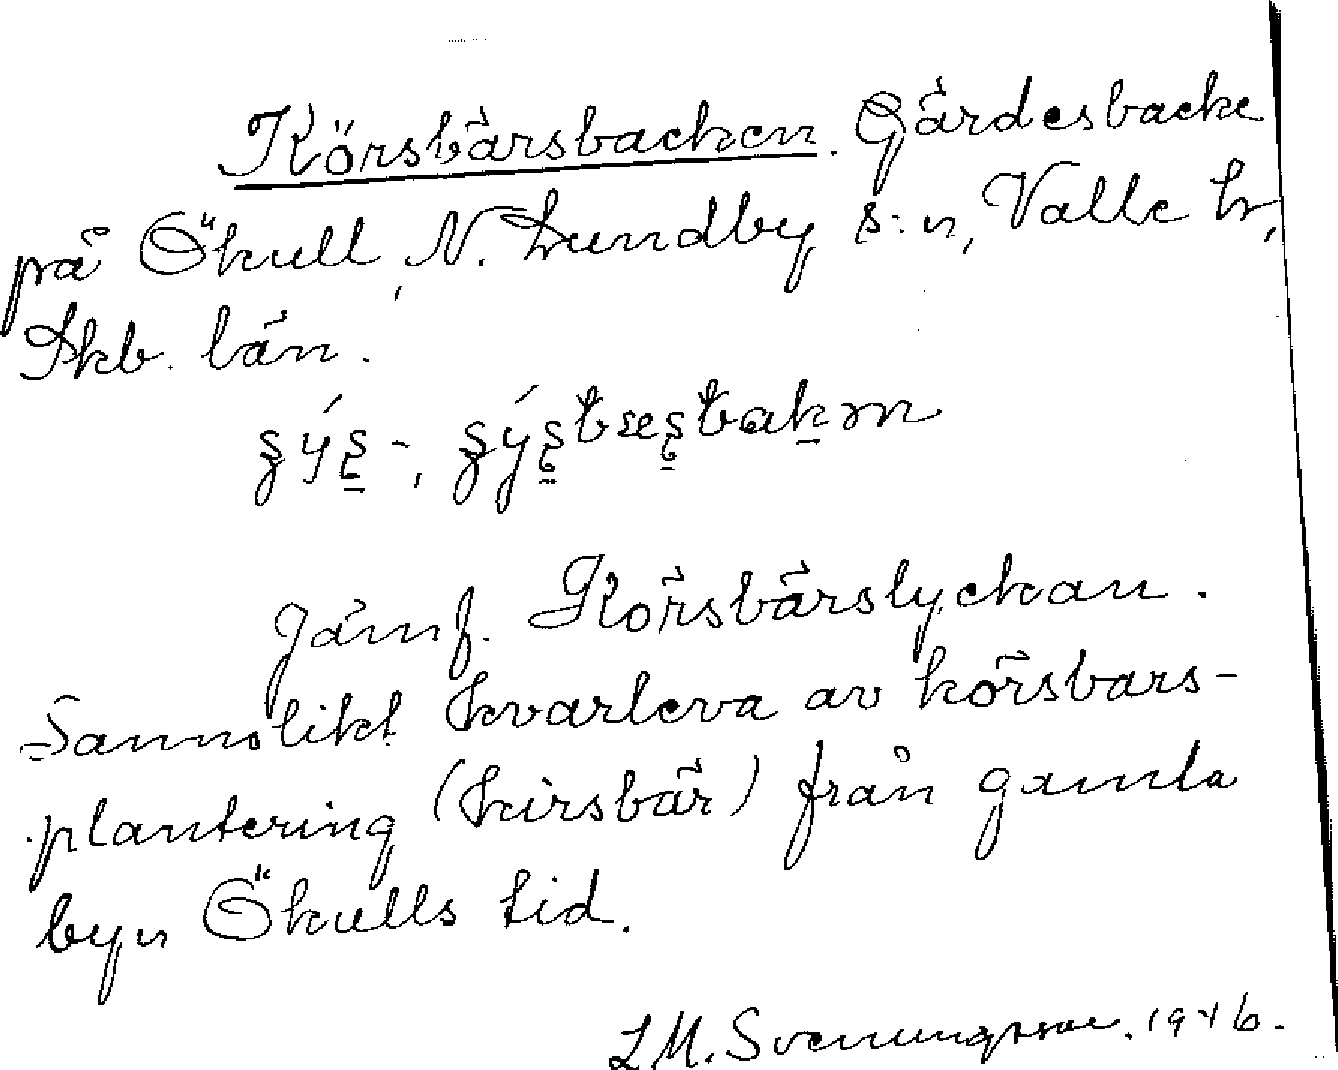 Körsbärsbacken. Gärdesbacke
på Ökull, N. Lundby s:n, Valle hr,
Skb. län.
Jämf. Körsbärslyckan.
Sannolikt kvarleva av körsbärs-
plantering (kirsbär) från gamla
byn Ökulls tid.
L M. Svenungsson. 1946.